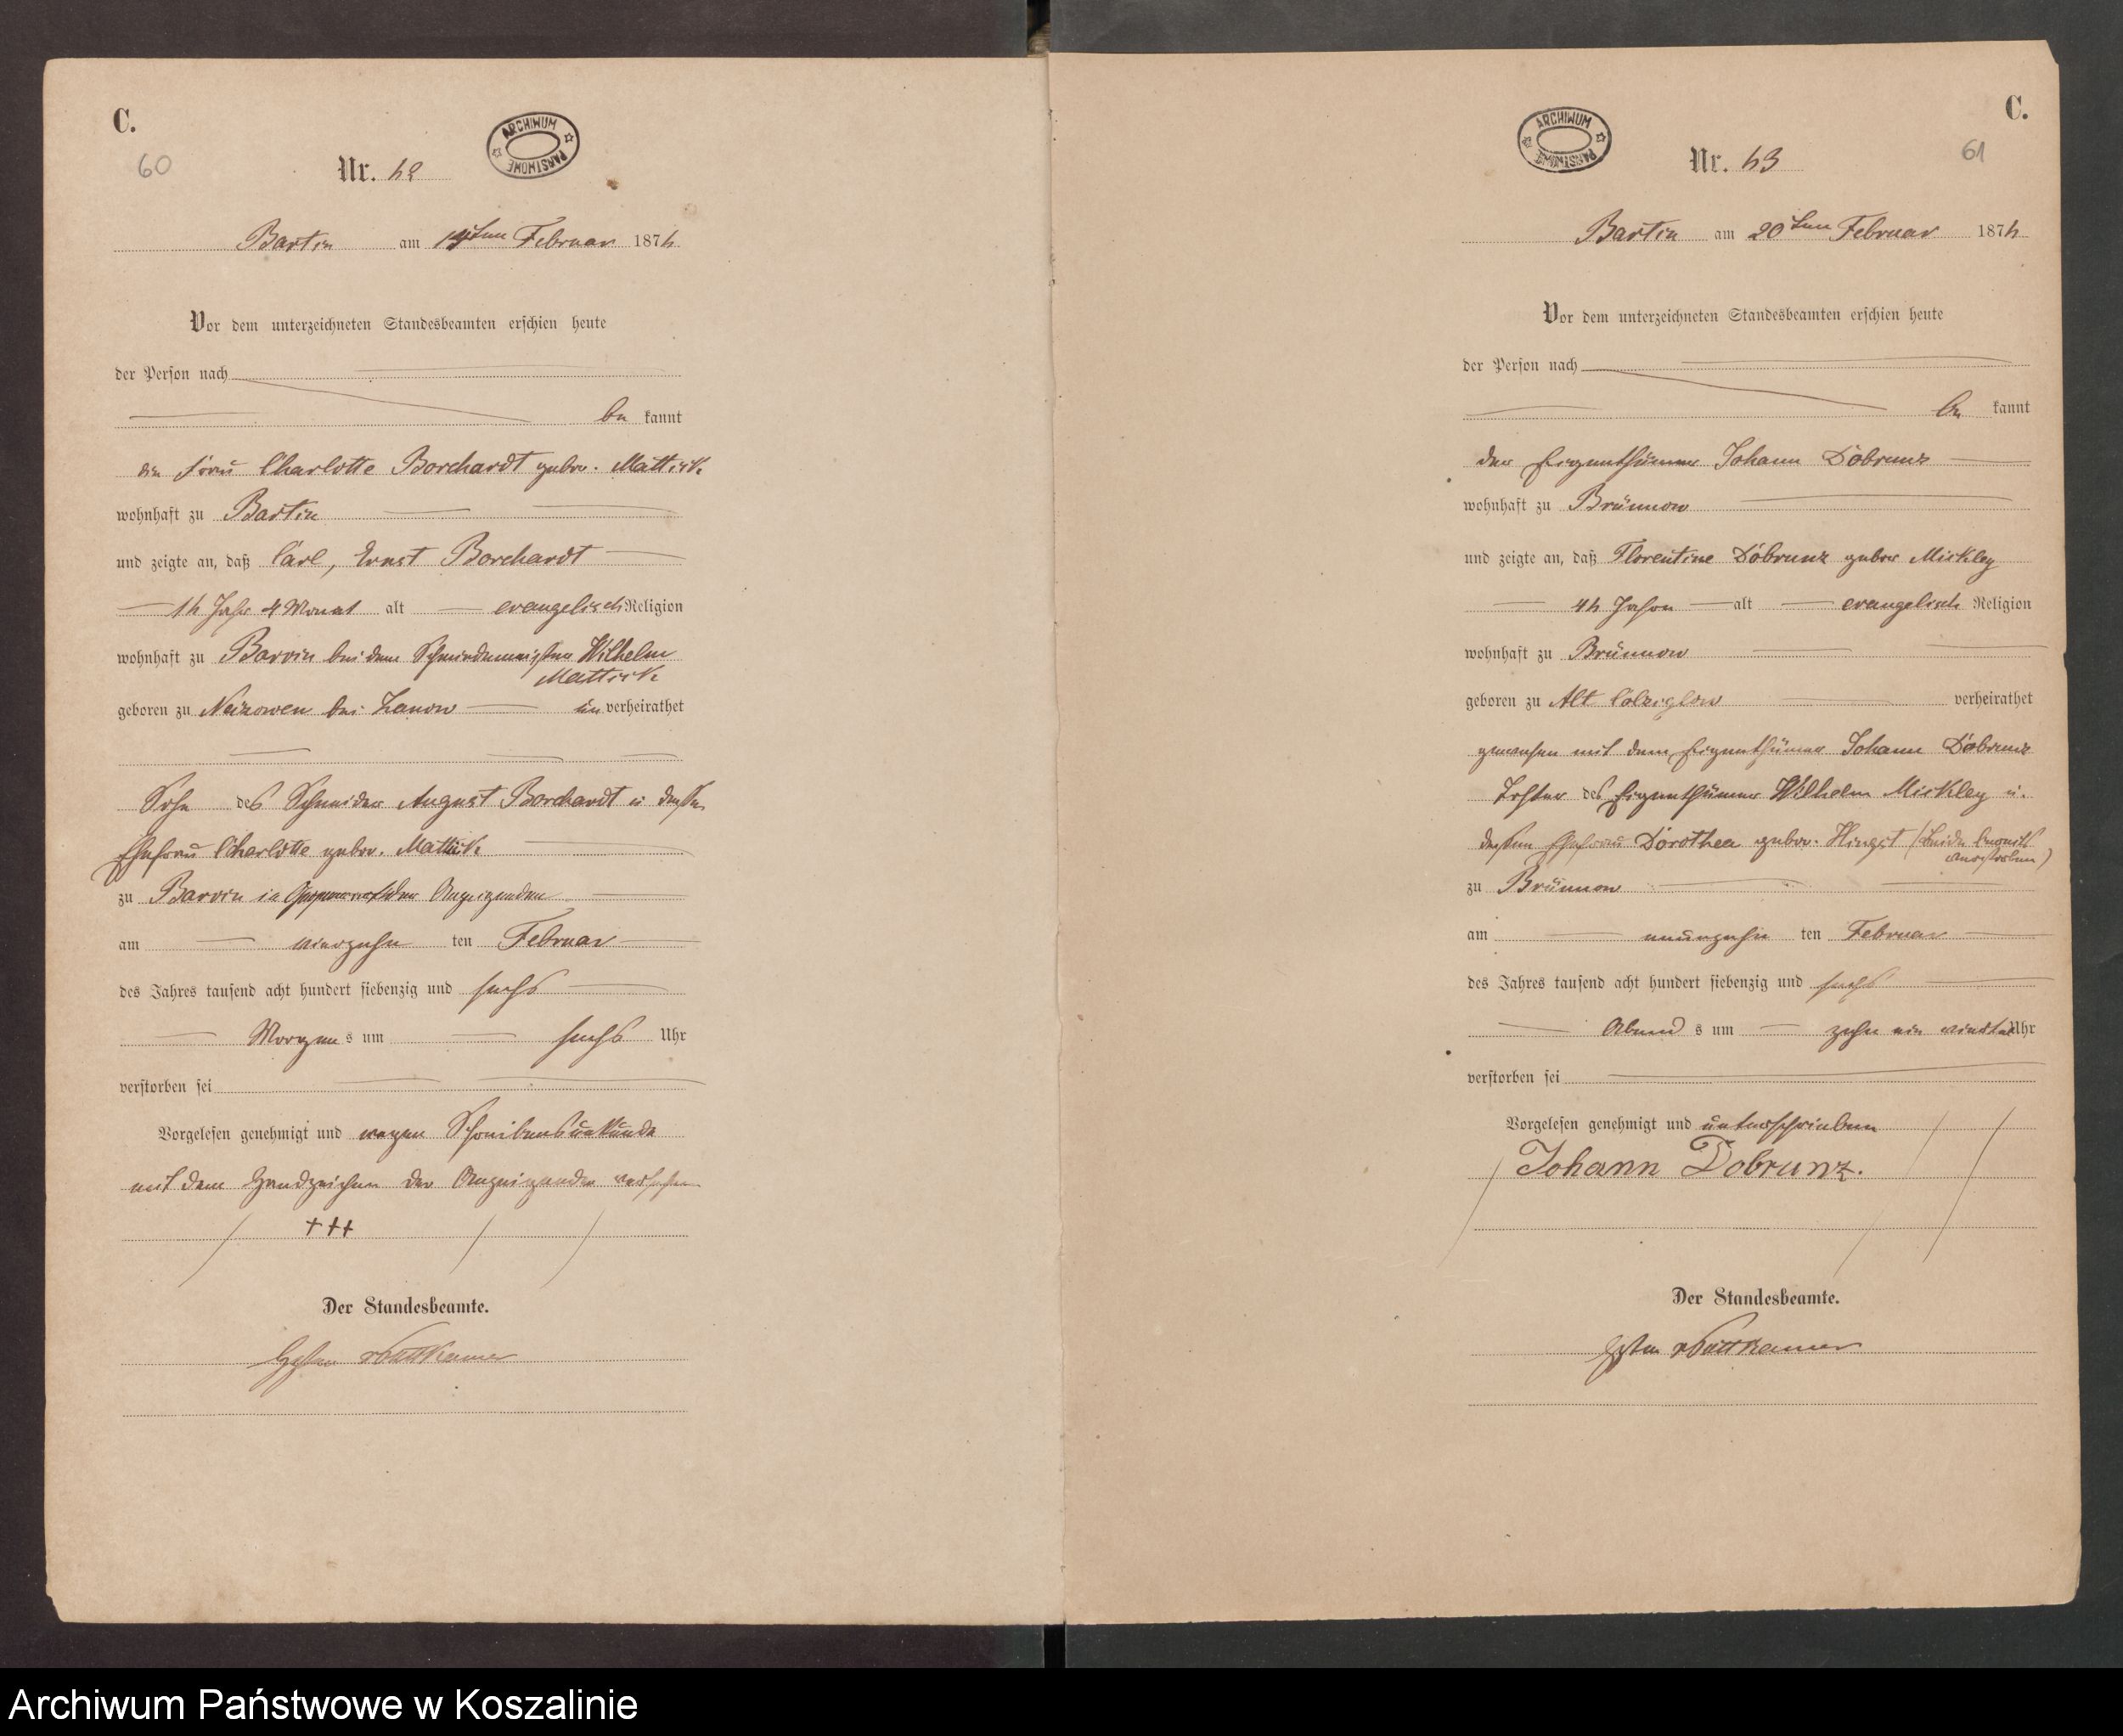 C.
60
Nr. 62
ARCHIWUM PAŃSTWOWE
Bartin am 14ten Februar 1876
Vor dem unterzeichneten Standesbeamten erschien heute
der Person nach
be kannt
die Frau Charlotte Borchardt gebor. Mattick
wohnhaft zu Bartin
und zeigte an, daß Carl, Ernst Borchardt
16 Jahr 4 Monat alt evangelisch Religion
wohnhaft zu Barvin bei dem Schneidermeister Wilhelm
Mattick
geboren zu bei Zanow un verheirathet
Sohn des Schneider August Borchardt u dessen
Ehefrau Charlotte gebor. Mattick
zu Barvin in Gegenwart der Anzeigenden
am vierzehn ten Februar
des Jahres tausend acht hundert siebenzig und sechs
Morgen s um sechs Uhr
verstorben sei
Vorgelesen genehmigt und wegen Schreibensunkunde
mit dem Handzeichen der Anzeigenden versehen
+++
Der Standesbeamte.
vPuttkamer
C.
61
Nr. 63
ARCHIWUM PAŃSTWOWE
Bartin am 20ten Februar 1876
Vor dem unterzeichneten Standesbeamten erschien heute
der Person nach
be kannt
der Eigenthümer Johann Dobrunz
wohnhaft zu Brünnow
und zeigte an, daß Florentine Dobrunz gebor Mickley
46 Jahre alt evangelisch Religion
wohnhaft zu Brünnow
geboren zu Alt Colziglow verheirathet
gewesen mit dem Eigenthümer Johann Dobrunz
Tochter des Eigenthümer Wilhelm Mickley u.
dessen Ehefrau Dorothea gebor. Hingst (beide bereits
verstorben)
zu Brünnow
am neunzehn ten Februar
des Jahres tausend acht hundert siebenzig und sechs
Abend s um zehn ein viertel Uhr
verstorben sei
Vorgelesen genehmigt und unterschrieben
Johann Dobrunz.
Der Standesbeamte.
vPuttkamer
Archiwum Państwowe w Koszalinie